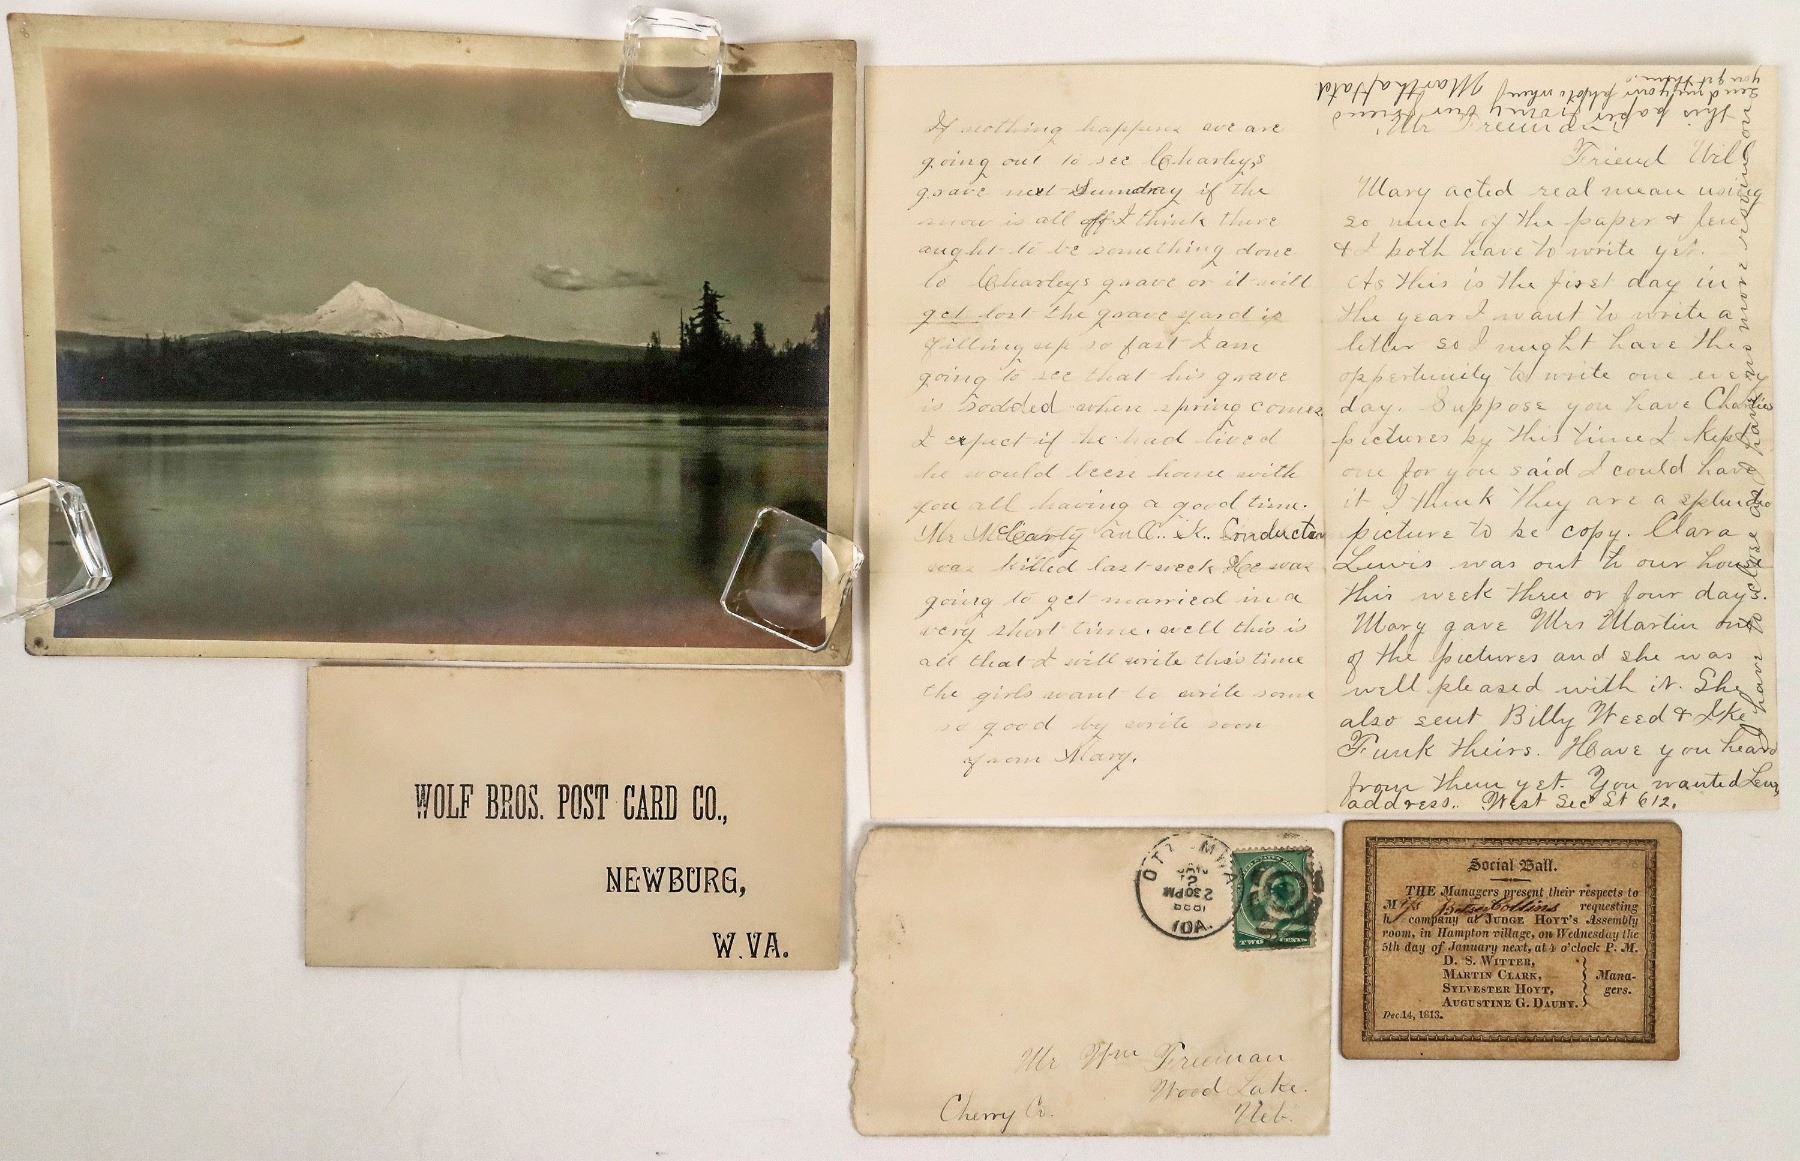 If nothing happens we are
going out to see Charleys
grave next Sunday if the
snow is all off I think there
aught to be something done
to Charleys grave or it will
get lost the grave yard is
filling up so fast I am
going to see that his grave
is sodded when spring comes.
I expect if he had lived
he would been home with
you all having a good time.
Mr McCarty an C.. K.. Conductor
was killed last week He was
going to get married in a
very short time. well this is
all that I will write this time
the girls want to write some
so good by write soon
from Mary.
Mr Freeman
Friend Will
Mary acted real mean using
so much of the paper & Jen
& I both have to write yet.
As this is the first day in
the year I want to write a
letter so I might have the
opportunity to write one every
day. Suppose you have Charlies
pictures by this time I kept
one for you said I could have
it I think they are a splendid
picture to be copy. Clara
Lewis was out to our house
this week three or four days.
Mary gave Mrs Martin one
of the pictures and she was
well pleased with it. She
also sent Billy Weed & Ike
Funk theirs. Have you heard
from them yet. You wanted Lews
address.. West Sec St 612.
I have to close as I have no more room on
this paper
send my your photo when
you get them.
WOLF BROS. POST CARD CO.,
NEWBURG,
W. VA.
OTTUMWA
2 30PM
IOA.
TWO CENTS
Mr Wm Freeman
Wood Lake.
Cherry Co. Neb.
Social Ball.
THE Managers present their respects to
M Betsy Collins requesting
h company at JUDGE HOYT'S Assembly
room, in Hampton village, on Wednesday the
5th day of January next, at 4 o'clock P. M.
D. S. WITTER,
MARTIN CLARK,
SYLVESTER HOYT,
AUGUSTINE G. DAUBY.
Managers.
Dec. 14, 1813.